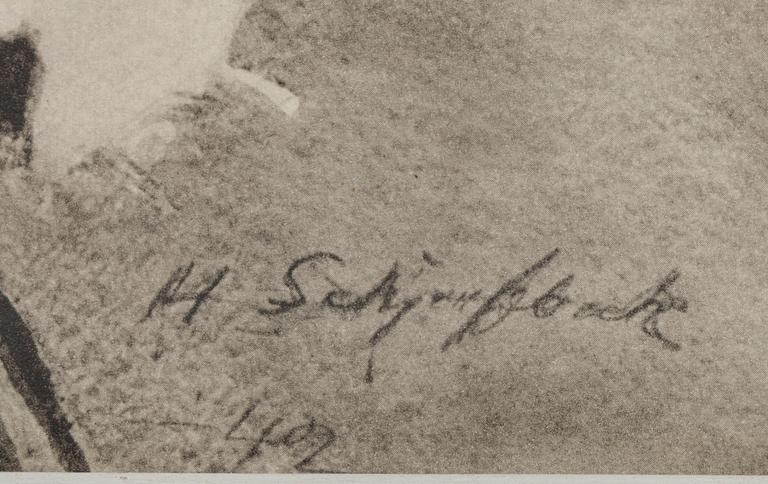 H Schjerfbeck
-1902